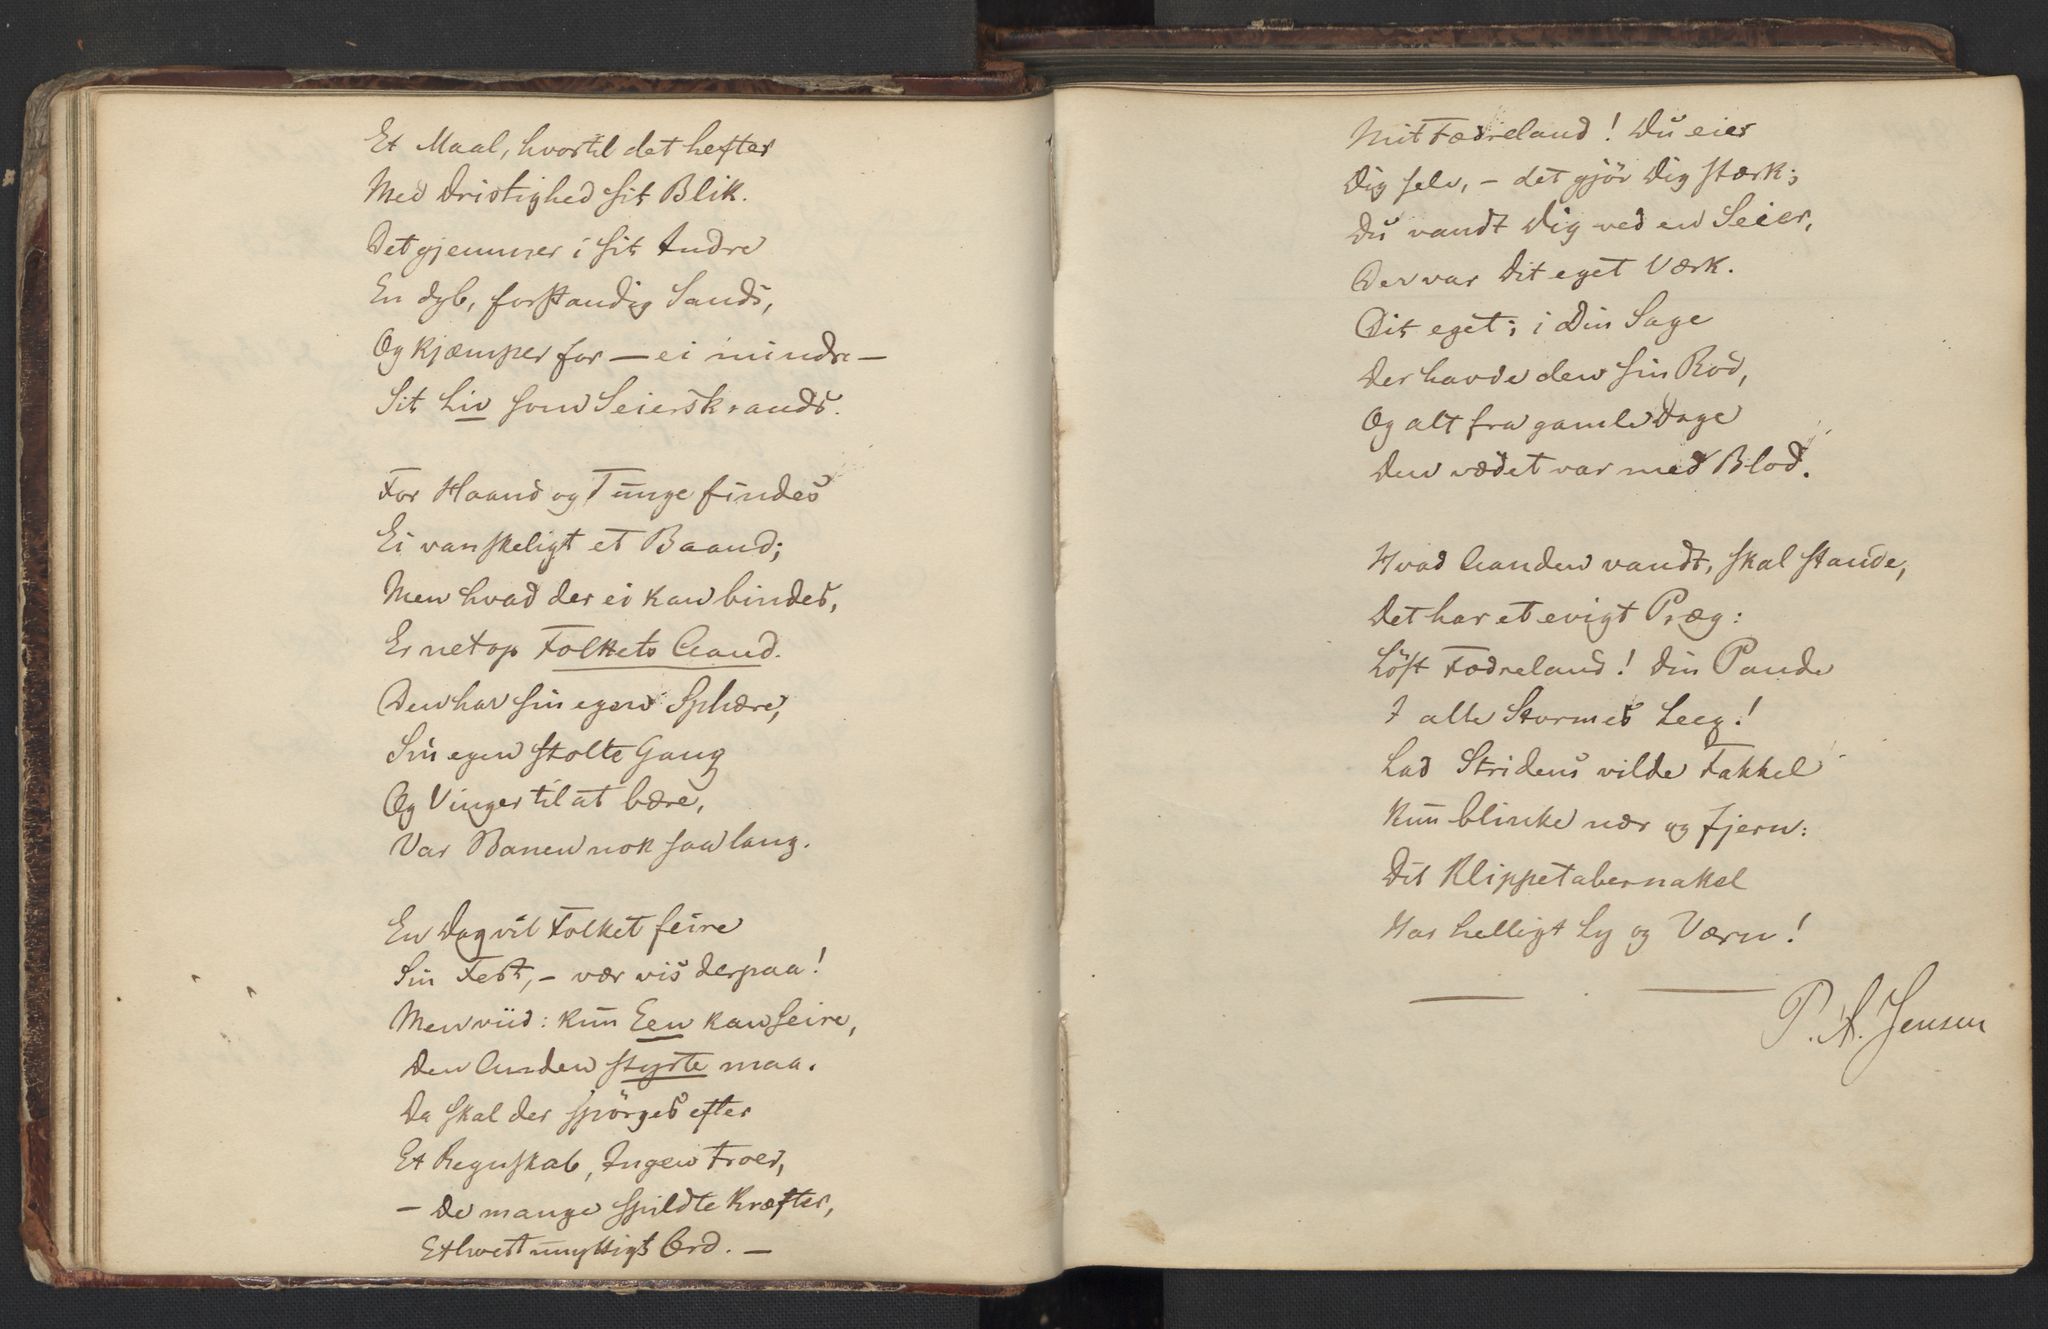 Et Maal, hvortil det hefter
Med Dristighed sit Blik.
Det gjemmer i sit Indre
En dyb, forstandig Sands,
Og kjæmper for — ei mindre —
Sit Liv som Seierskrands.
For Haand og Tunge findes
Ei vanskeligt et Baand;
Men hvad der ei kan bindes,
Er netop Folkets Aand.
Den har sin egen Sphære,
Sin egen stolte Gang
Og Vinger til at bære,
Var Banen nok saa lang.
En Dag vil Folket feire
Sin Fest, – vær vis derpaa!
Men viid: kun Een kan seire,
Den Anden styrte maa.
Da skal der spörges efter
Et Regnskab, Ingen troer,
– De mange spildte Kræfter,
Ethvert unyttigt Ord. —
Mit Fædreland! Du eier
Dig selv, – det gjör Dig stærk;
Du vandt Dig ved en Seier,
Der var Dit eget Værk.
Dit eget; i Din Sage
Der havde den sin Rod,
Og alt fra gamle Dage
Den vædet var med Blod.
Hvad Aanden vandt, skal stande,
Det har et evigt Præg:
Löft Fædreland! Din Pande
I alle Stormes Leeg!
Lad Stridens vilde Fakkel
Kun blinke nær og fjern:
Dit Klippetabernakel
Har helligt Ly og Værn!
P. A. Jensen